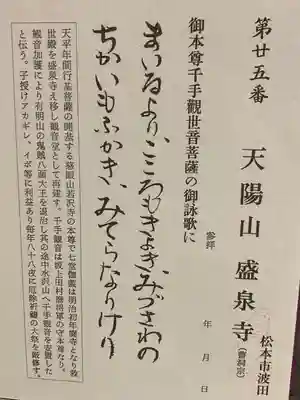 第廿五番　天陽山　盛泉寺（曹洞宗）
松本市波田
参拝　年　月　日
御本尊千手觀世音菩薩の御詠歌に
まいるより、こころもきよき、みづさわの
ちかいもふかき、みてらなりけり
天平年間行基菩薩の開基する慈眼山若沢寺の本尊で七堂伽藍は明治初年廃寺となり救
世殿を盛泉寺え移し観音堂として再建す。千手観音は坂上田村麿将軍の守本尊なり。
観音加護により有明山の鬼賊八面大王を退治し其の途中水沢山へ千手観音を安置した
と伝う。子授けアカギレ、イボ等に利益あり毎年八十八夜に厄除祈禱の大祭を厳修す。